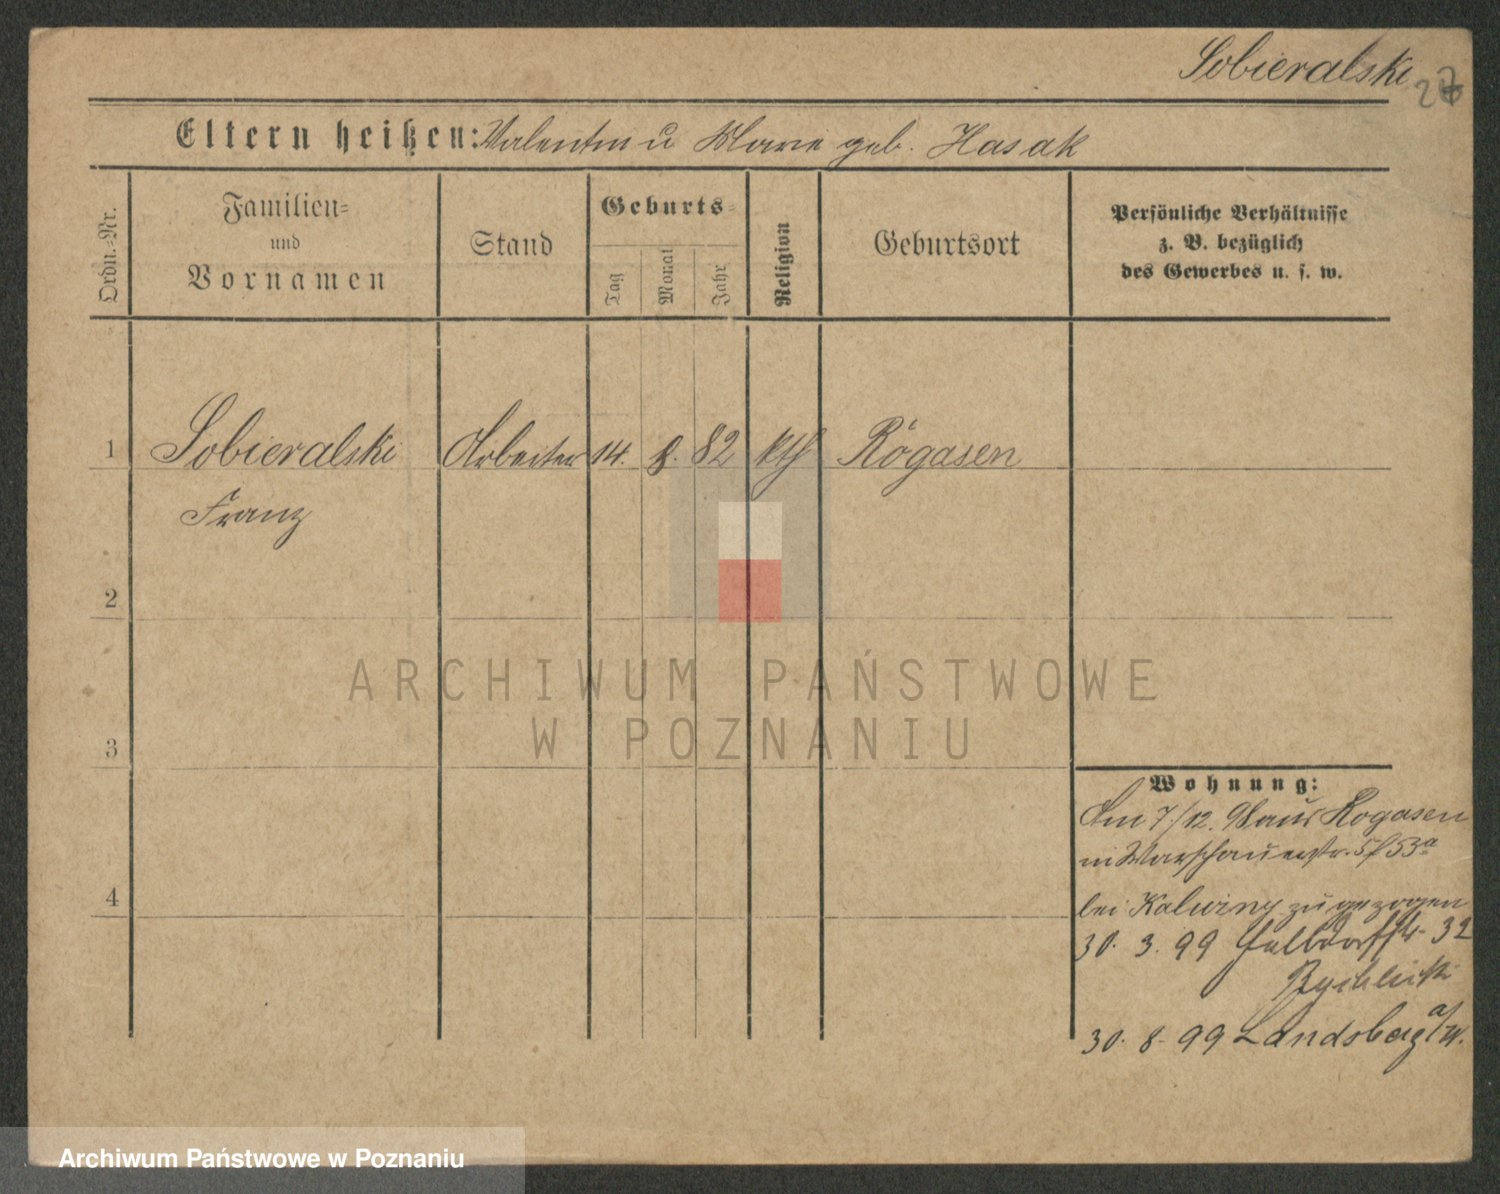 Sobieralski
27
Eltern heißen: Valentin u Marie geb. Hasak
Ordn.-Nr.
Familien-
und
Vornamen
Stand
Geburts-
Tag
Monat
Jahr
Religion
Geburtsort
Persönliche Verhältnisse
z. B. bezüglich
des Gewerbes u. s. w.
1 Sobieralski Arbeiter 14. 8. 82 kth Rogasen
Franz
2
ARCHIWUM PAŃSTWOWE
W POZNANIU
3
Wohnung:
Am 7/12. 98 aus Rogasen
in Warschauerstr. 53a
4
bei zugezogen
30. 3. 99 32
30. 8. 99 Landsberg a/W.
Archiwum Państwowe w Poznaniu